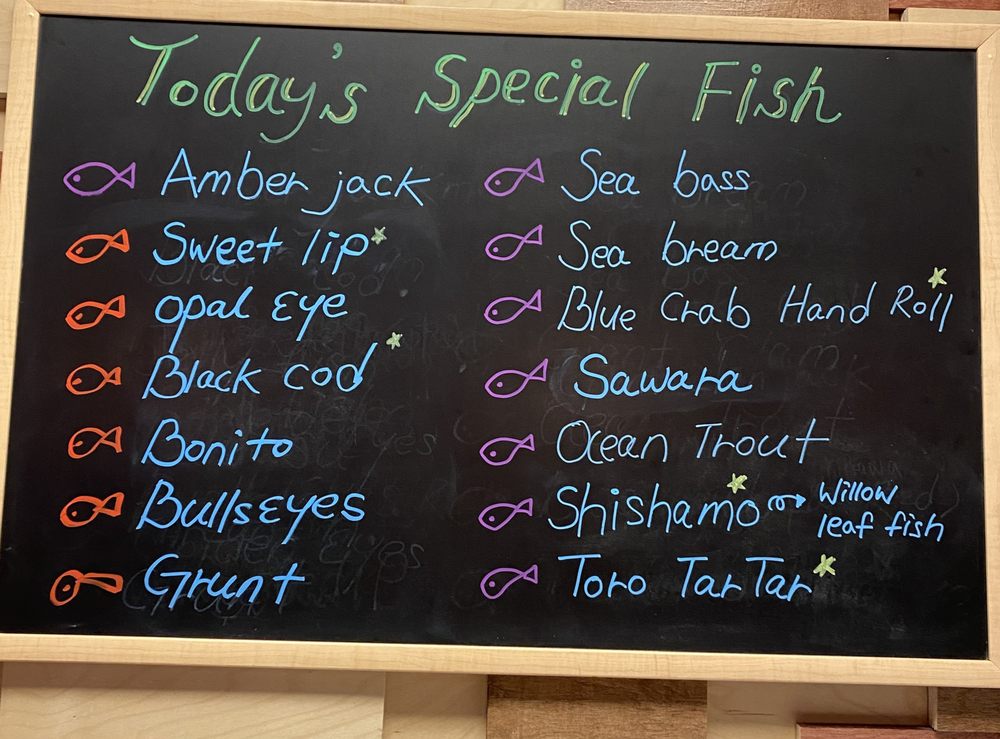 Today's Special Fish
Amber jack
Sweet lip
opal Eye
Black cod
Bonito
BullsEyes
Grunt
Sea bass
Sea bream
Blue Crab Hand Roll
Sawara
Ocean Trout
Shishamo → Willow
leaf fish
Toro TarTar